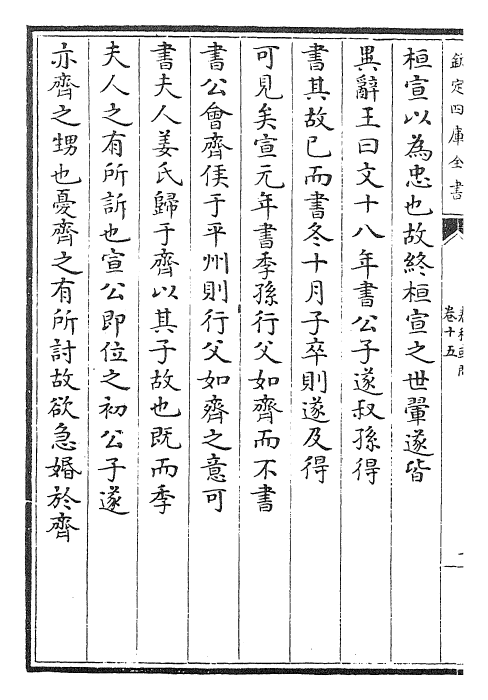 欽定四庫全書
卷十五
桓宣以為忠也故終桓宣之世翬遂皆
異辭王曰文十八年書公子遂叔孫得
書其故已而書冬十月子卒則遂及得
可見矣宣元年書季孫行父如齊而不書
書公會齊侯于平州則行父如齊之意可
書夫人姜氏歸于齊以其子故也既而季
夫人之有所訴也宣公即位之初公子遂
亦齊之甥也憂齊之有所討故欲急婚於齊